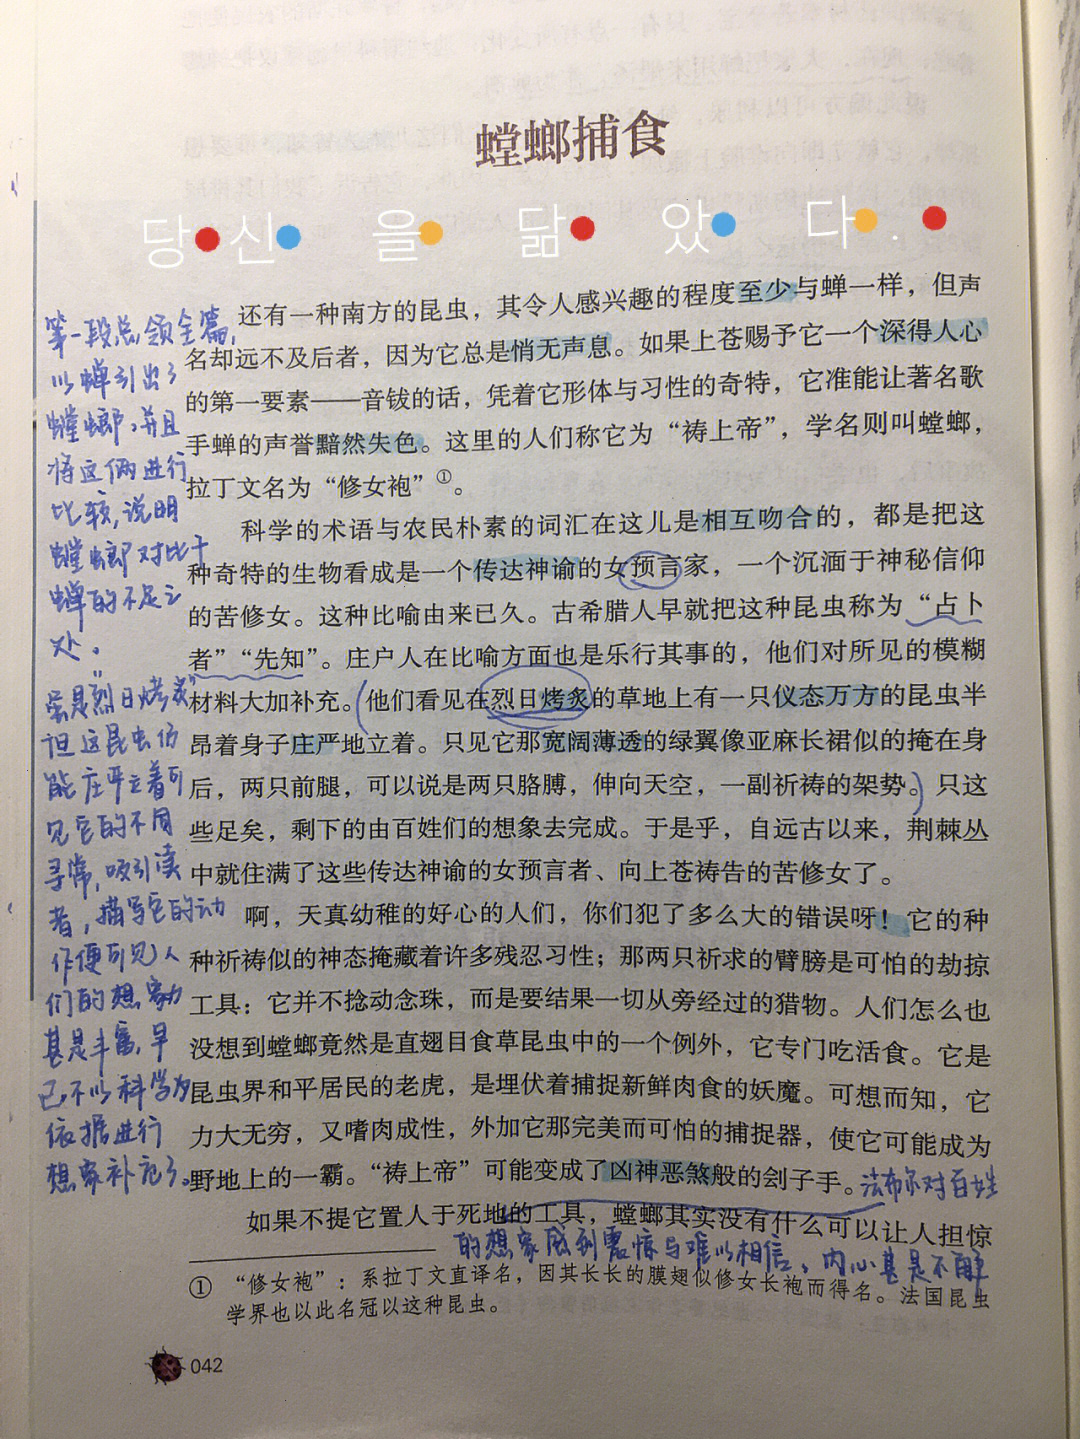 螳螂捕食
당신을닮았다.
还有一种南方的昆虫，其令人感兴趣的程度至少与蝉一样，但声
名却远不及后者，因为它总是悄无声息。如果上苍赐予它一个深得人心
的第一要素——音钹的话，凭着它形体与习性的奇特，它准能让著名歌
手蝉的声誉黯然失色。这里的人们称它为“祷上帝”，学名则叫螳螂，
拉丁文名为“修女袍”①。
科学的术语与农民朴素的词汇在这儿是相互吻合的，都是把这
种奇特的生物看成是一个传达神谕的女预言家，一个沉湎于神秘信仰
的苦修女。这种比喻由来已久。古希腊人早就把这种昆虫称为“占卜
者”“先知”。庄户人在比喻方面也是乐行其事的，他们对所见的模糊
材料大加补充。他们看见在烈日烤炙的草地上有一只仪态万方的昆虫半
昂着身子庄严地立着。只见它那宽阔薄透的绿翼像亚麻长裙似的掩在身
后，两只前腿，可以说是两只胳膊，伸向天空，一副祈祷的架势。只这
些足矣，剩下的由百姓们的想象去完成。于是乎，自远古以来，荆棘丛
中就住满了这些传达神谕的女预言者、向上苍祷告的苦修女了。
啊，天真幼稚的好心的人们，你们犯了多么大的错误呀！它的种
种祈祷似的神态掩藏着许多残忍习性；那两只祈求的臂膀是可怕的劫掠
工具：它并不捻动念珠，而是要结果一切从旁经过的猎物。人们怎么也
没想到螳螂竟然是直翅目食草昆虫中的一个例外，它专门吃活食。它是
昆虫界和平居民的老虎，是埋伏着捕捉新鲜肉食的妖魔。可想而知，它
力大无穷，又嗜肉成性，外加它那完美而可怕的捕捉器，使它可能成为
野地上的一霸。“祷上帝”可能变成了凶神恶煞般的刽子手。
如果不提它置人于死地的工具，螳螂其实没有什么可以让人担惊
①“修女袍”：系拉丁文直译名，因其长长的膜翅似修女长袍而得名。法国昆虫
学界也以此名冠以这种昆虫。
042
第一段总领全篇，
以蝉引出了
螳螂，并且
将这俩进行
比较，说明
螳螂对比于
蝉的不足之
处。
虽是“烈日烤炙”
但这昆虫仍
能庄严立着可
见它的不同
寻常，吸引读
者，描写它的动
作便可见人
们的想象力
甚是丰富，早
已不以科学为
依据进行
想象补充了。
法布尔对百姓
的想象感到震惊与难以相信，内心甚是不解